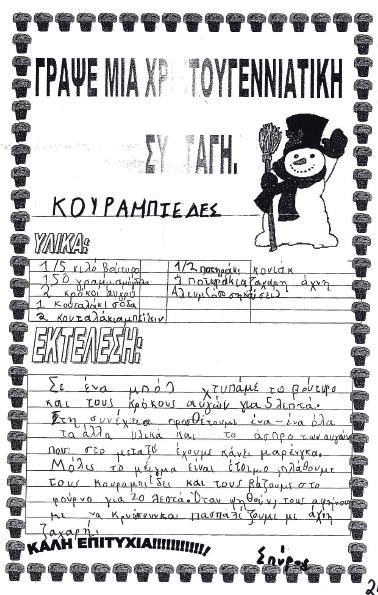 ΓΡΑΨΕ ΜΙΑ ΧΡΙΣΤΟΥΓΕΝΝΙΑΤΙΚΗ
ΣΥΝΤΑΓΗ.
ΚΟΥΡΑΜΠΙΕΔΕΣ
ΥΛΙΚΑ:
1/5 κιλό βούτυρο 1/2 ποτηράκι κονιάκ
150 γραμμαρια 2 ζάχαρη άχνη
2 κρόκοι αυγού
1 κουταλάκι σόδα
2 κουταλάκια
ΕΚΤΕΛΕΣΗ:
Σε ένα μπόλ χτυπάμε το βούτυρο
και τους κρόκους αυγών για 5 λεπτά.
Στη συνέχεια προσθέτουμε ένα-ένα όλα
τα άλλα υλικά και το ασπρο των αυγών
που στο μεταξύ έχουμε κάνει μαρέγκα.
Μόλις το μείγμα ειναι έτοιμο πλάθουμε
τους κουραμπιέδες και τους βάζουμε στο
φούρνο για 20 λεπτά. Όταν ψηθούν, τους αφήνουμε
να κρυώσουν και πασπαλίζουμε με άχνη
ζαχαρη.
ΚΑΛΗ ΕΠΙΤΥΧΙΑ!!!!!!!!!!!!
Σπύρος